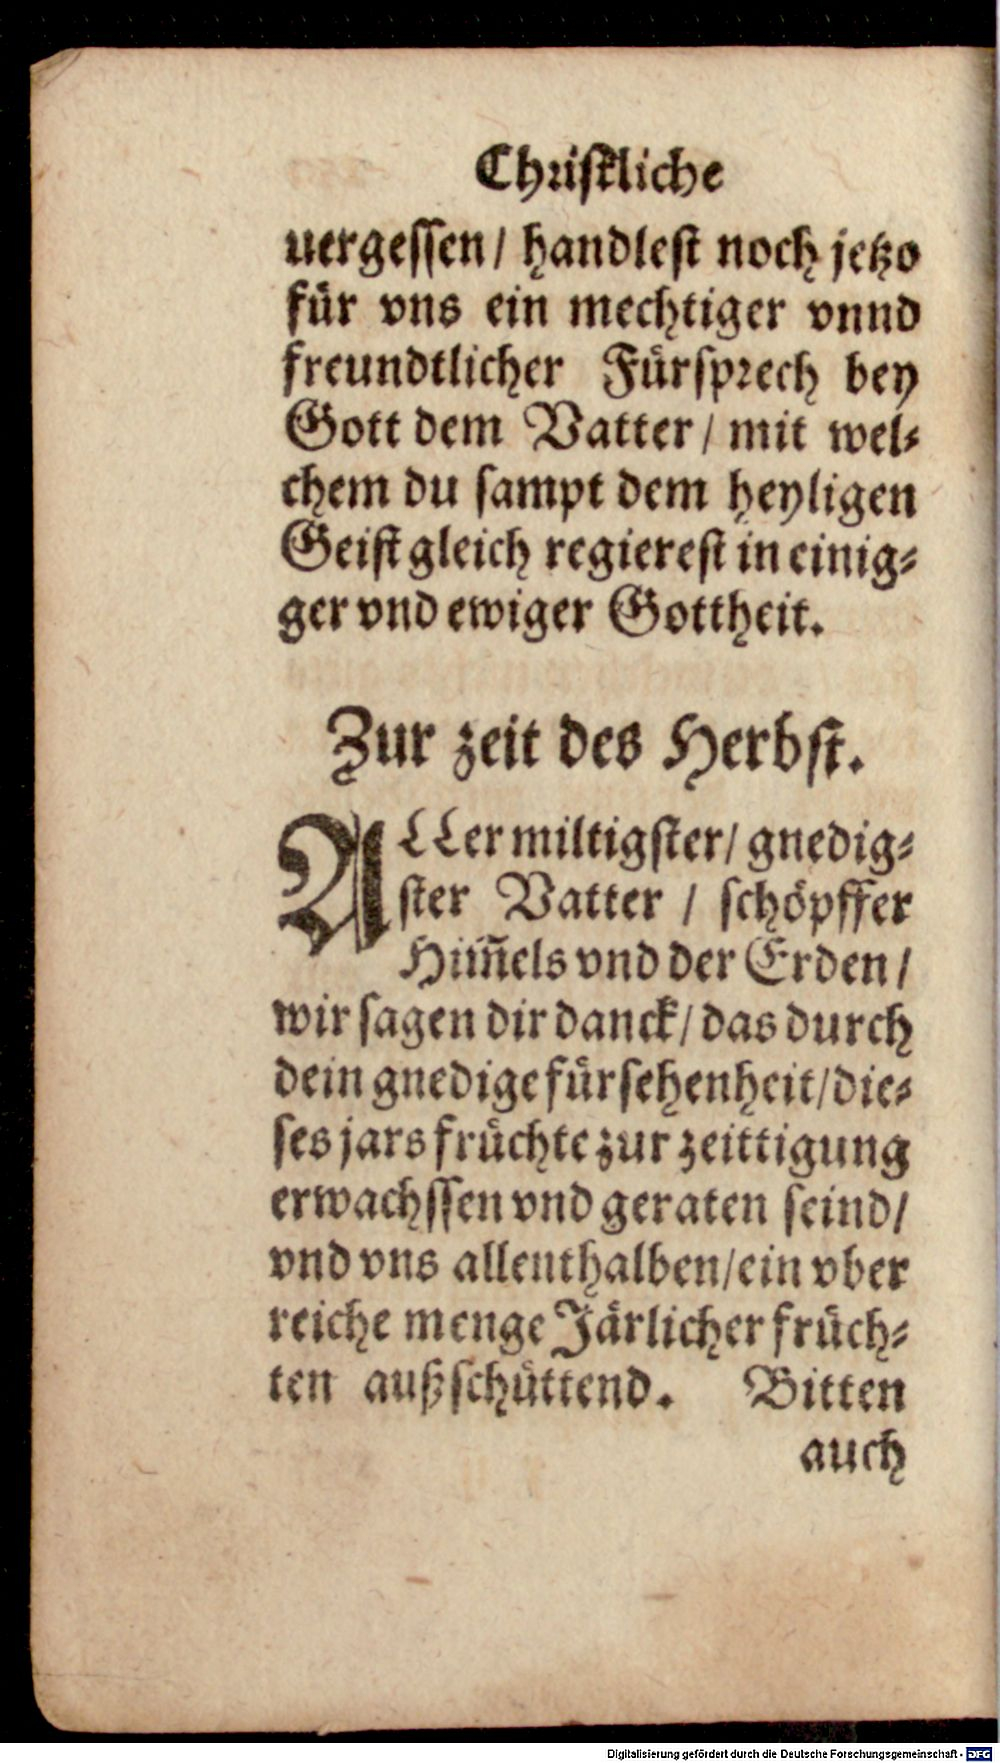 Christliche
uergessen/ handlest noch jetzo
für vns ein mechtiger vnnd
freundtlicher Fürsprech bey
Gott dem Vatter/ mit wel⸗
chem du sampt dem heyligen
Geist gleich regierest in einig⸗
ger vnd ewiger Gottheit.
Zur zeit des Herbst.
ALLer miltigster/ gnedig⸗
ster Vatter / schöpffer
Him̃els vnd der Erden/
wir sagen dir danck/ das durch
dein gnedige fürsehenheit/ die⸗
ses jars früchte zur zeittigung
erwachssen vnd geraten seind/
vnd vns allenthalben/ ein vber
reiche menge Järlicher früch⸗
ten außschüttend. Bitten
auch
Digitalisierung gefördert durch die Deutsche Forschungsgemeinschaft - DFG